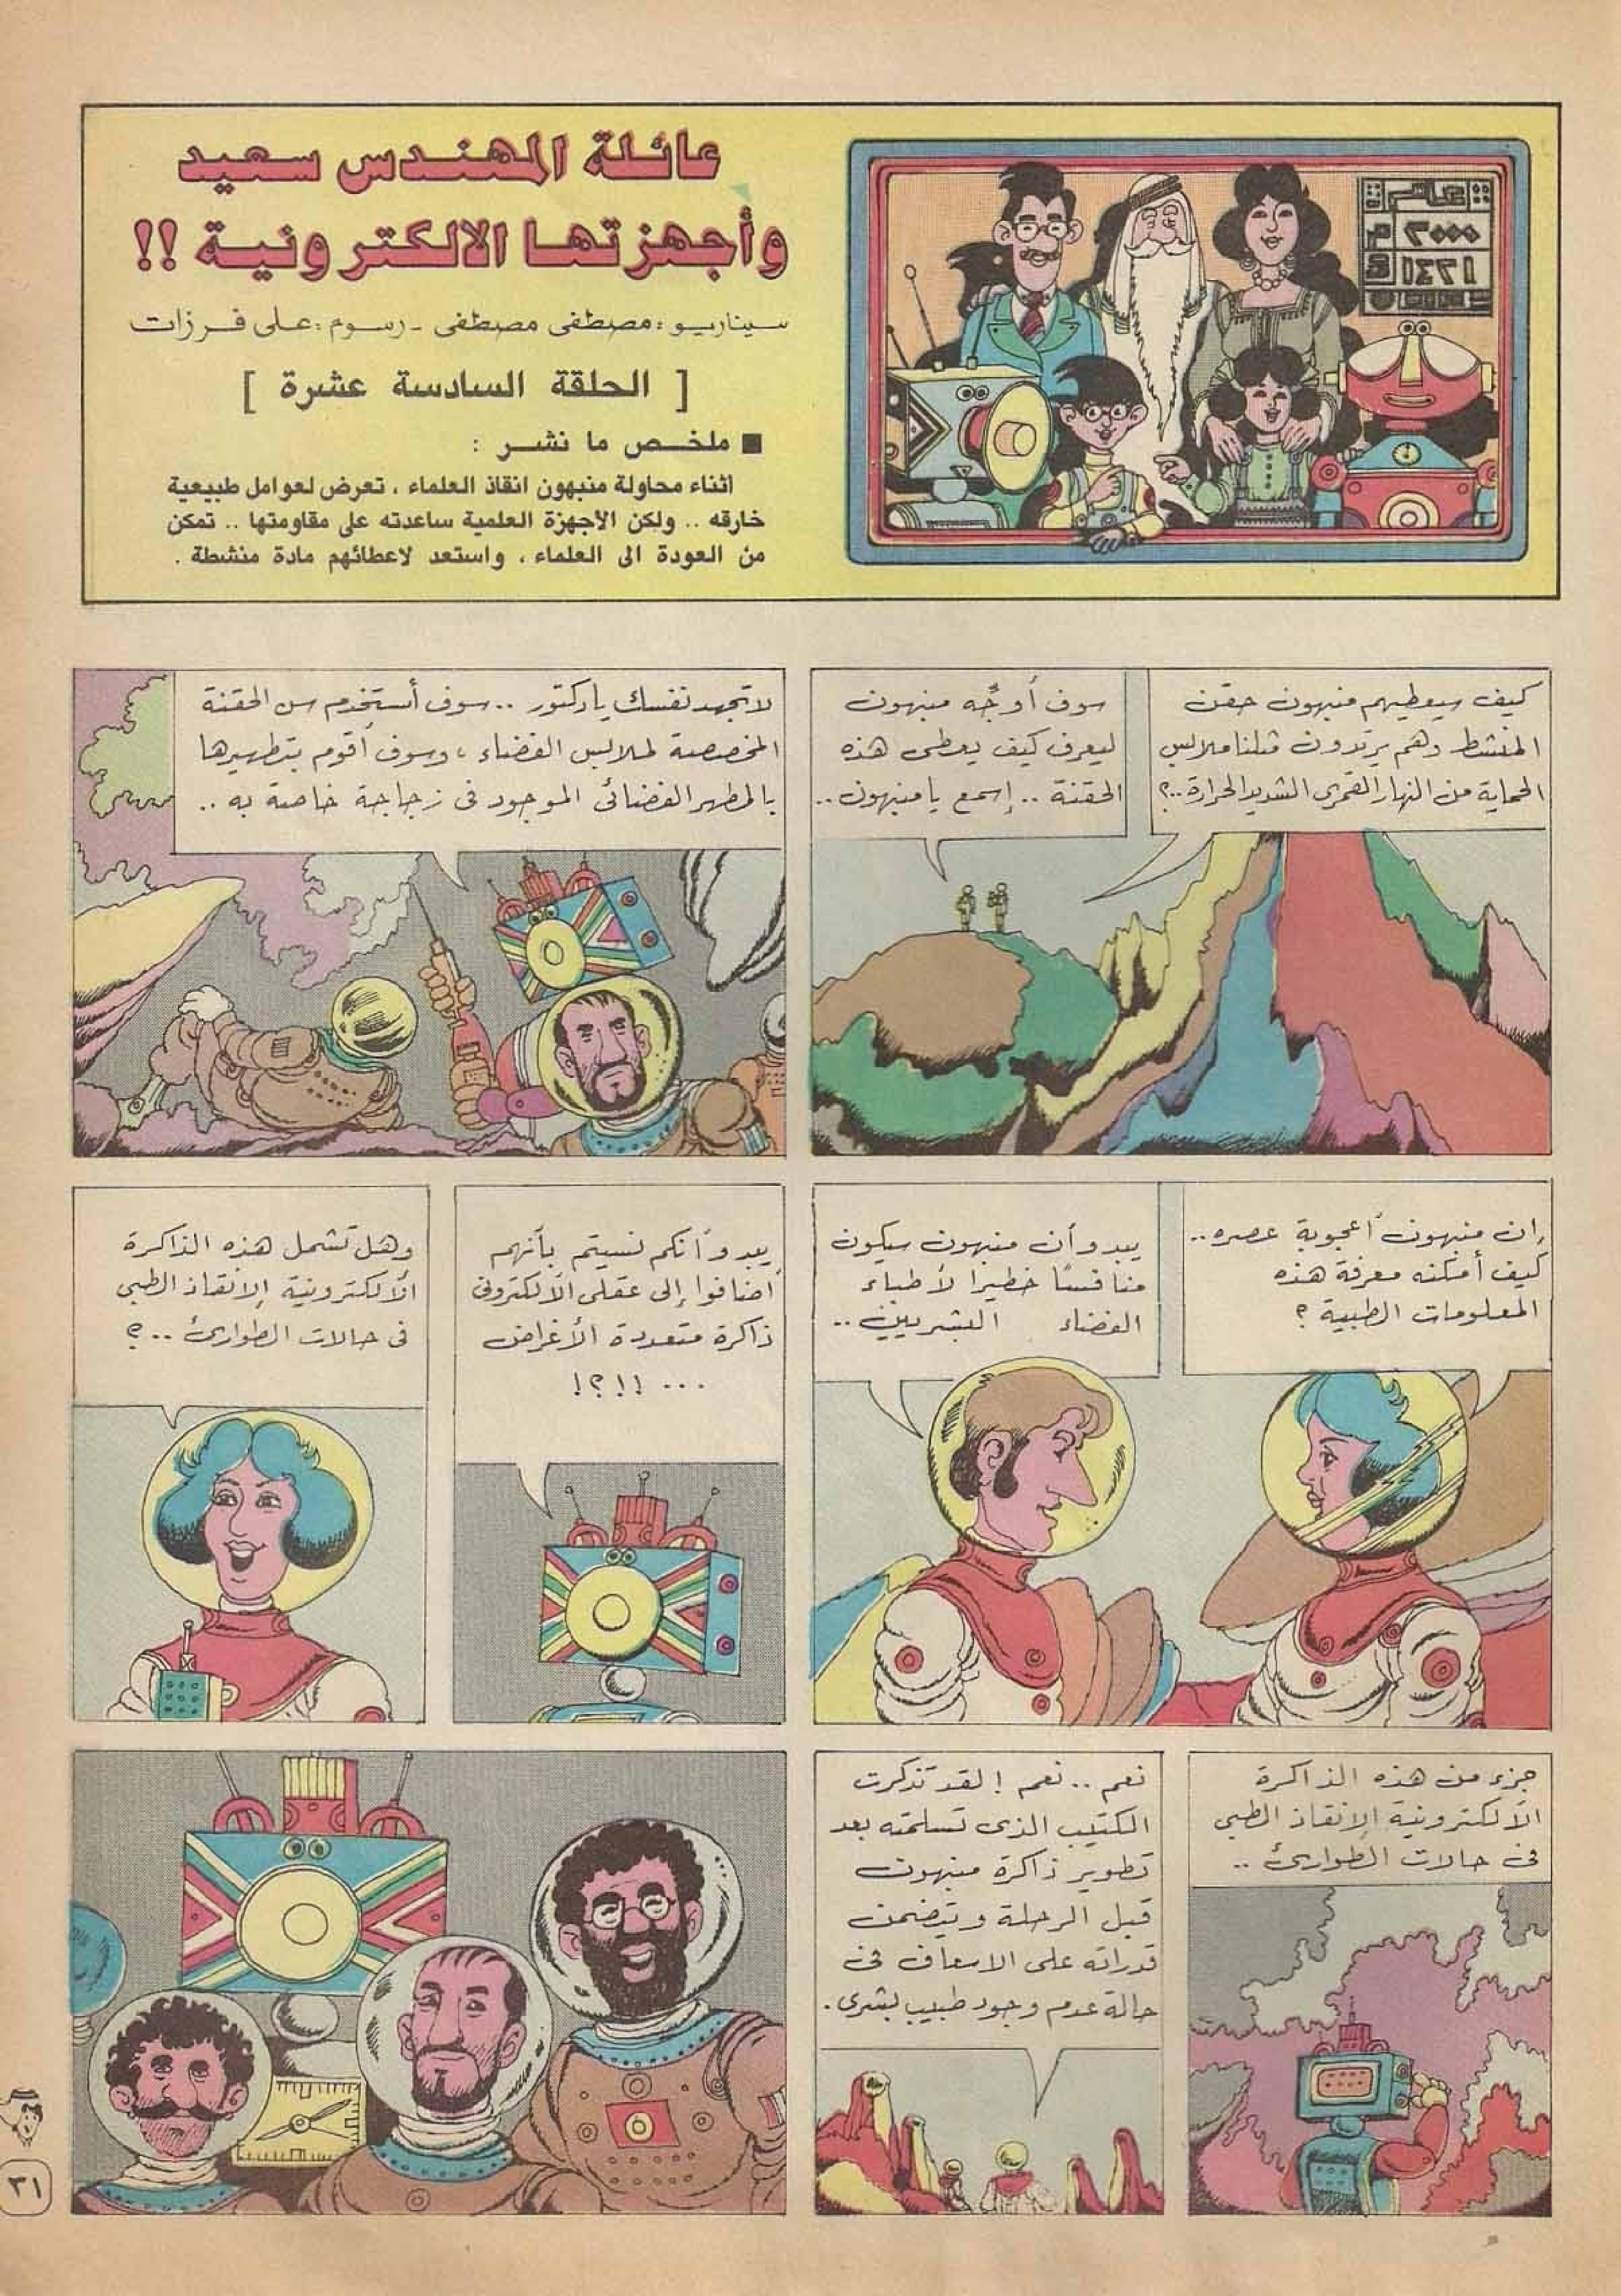 عائلة المهندس سعيد
وأجهزتها الالكترونية !!
سيناريو : مصطفى مصطفى - رسوم : على فرزات
[ الحلقة السادسة عشرة ]
■ ملخص ما نشر :
اثناء محاولة منبهون انقاذ العلماء ، تعرض لعوامل طبيعية
خارقه .. ولكن الأجهزة العلمية ساعدته على مقاومتها .. تمكن
من العودة الى العلماء ، واستعد لاعطائهم مادة منشطة .
عام
٢٠٠٠ م
١٤٢١
كيف سيعطيهم منبهون حقن
المنشط وهم يرتدون مثلنا ملابس
الحماية من النهار القمرى الشديد الحرارة ..؟
سوف أوجِّه منبهون
ليعرف كيف يعطى هذه
الحقنة .. إسمع يا منبهون ..
لا تجهد نفسك يا دكتور .. سوف أستخدم سن الحقنة
المخصصة لملابس الفضاء ، وسوف أقوم بتطهيرها
بالمطهر الفضائى الموجود فى زجاجة خاصة به ..
إن منبهون أعجوبة عصره ..
كيف أمكنه معرفة هذه
المعلومات الطبية ؟
يبدو أن منبهون سيكون
منافسًا خطيرا لأطباء
الفضاء البشريين ..
يبدو أنكم نسيتم بأنهم
أضافوا إلى عقلى الألكترونى
ذاكرة متعددة الأغراض
... !!؟!
وهل تشمل هذه الذاكرة
الألكترونية الإنقاذ الطبى
فى حالات الطوارئ ..؟
جزء من هذه الذاكرة
الألكترونية الإنقاذ الطبى
فى حالات الطوارئ ..
نعم .. نعم ! لقد تذكرت
الكتيب الذى تسلمته بعد
تطوير ذاكرة منبهون
قبل الرحلة ويتضمن
قدراته على الاسعاف فى
حالة عدم وجود طبيب بشرى .
٣١